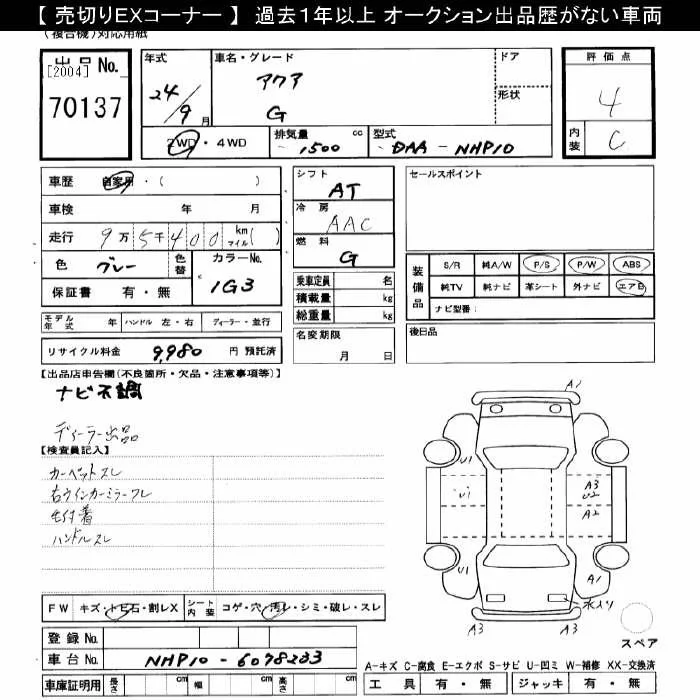 【 売切りEXコーナー 】 過去1年以上 オークション出品歴がない車両
(複合機)対応用紙
出品 No.
[2004]
70137
年式
24/9月
車名・グレード
アクア
G
ドア
形状
2WD・4WD
排気量 1500 cc
型式 DAA - NHP10
評価点
4
内装 C
車歴 自家用・( )
車検 年 月
走行 9万5千400 km マイル( )
色 グレー 色替
カラーNo. 1G3
保証書 有・無
シフト
AT
冷房
AAC
燃料
G
乗車定員 名
積載量 kg
総重量 kg
セールスポイント
装備品
S/R 純A/W P/S P/W ABS
純TV 純ナビ 革シート 外ナビ エアB
ナビ型番:
モデル年式 年 ハンドル 左・右 ディーラー・並行
リサイクル料金 9,980 円 預託済
名変期限
月 日
後日品
【出品店申告欄(不良箇所・欠品・注意事項等)】
ナビ不調
ディーラー出品
【検査員記入】
カーペットスレ
右ウインカーミラーワレ
毛付着
ハンドルスレ
A1
U1
U1
A3
U2
A2
U1
A1
水入り
A3
A3
スペア
FW キズ・トビ石・割レX シート内装 コゲ・穴・汚レ・シミ・破レ・スレ
登録 No.
車台 No. NHP10 - 6078233
車庫証明用 長さ cm 幅 cm 高さ cm
A-キズ C-腐食 E-エクボ S-サビ U-凹ミ W-補修 XX-交換済
工具 有・無 ジャッキ 有・無